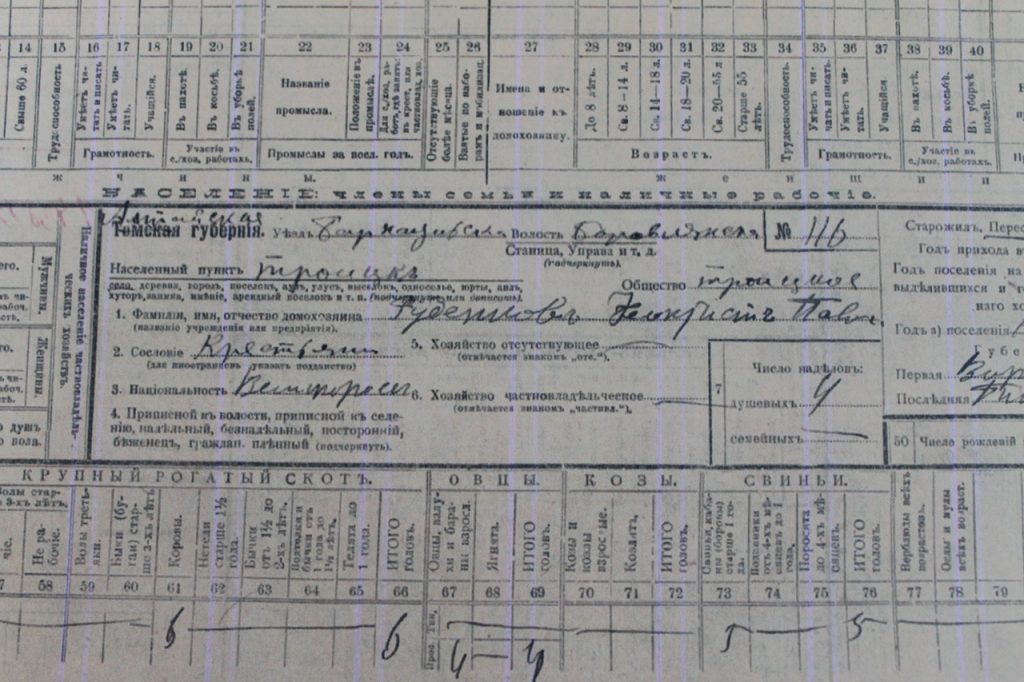 14 15 16 17 18 19 20 21 22 23 24 25 26 27 28 29 30 31 32 33 34 35 36 37 38 39 40
Свыше 60 л.
Трудоспособность
Умѣетъ читать и писать
Умѣетъ читать.
Учащійся.
Въ пахотѣ.
Въ косьбѣ.
Въ уборкѣ полей.
Названіе промысла.
Положеніе въ промыслѣ.
Отсутствующіе болѣе мѣсяца.
Имена и отношеніе къ домохозяину.
До 8 лѣтъ.
Св. 8—14 л.
Св. 14—18 л.
Св. 18—20 л.
Св. 20—55 л
Старше 55 лѣтъ.
Трудоспособность.
Умѣетъ читать и писать
Умѣетъ читать.
Учащійся
Въ пахотѣ.
Въ косьбѣ.
Въ уборкѣ полей.
Грамотность.
Участіе въ с./хоз. работахъ.
Промыслы за посл. годъ.
Возрастъ.
Грамотность.
Участіе въ с./хоз. работахъ.
ж ч и н ы. ж е н щ и н
НАСЕЛЕНІЕ: члены семьи и наличные рабочіе.
Алтайская
Томская губернія. Уѣздъ Барнаульск Волость Боровлянск № 116
Станица, Управа и т. д.
(подчеркнуть).
Населенный пунктъ Троицкъ Общество Троицкое
село, деревня, городъ, поселокъ, аулъ, улусъ, выселокъ, односелье, юрты, аилъ,
хуторъ, заимка, имѣніе, арендный поселокъ и т. п. (подчеркнуть или дописать).
1. Фамилія, имя, отчество домохозяина Феоктистъ Павл.
(названіе учрежденія или предпріятія).
2. Сословіе Крестьянин
(для иностранцевъ указать подданство)
5. Хозяйство отсутствующее
(отмѣчается знакомъ „отс.“).
3. Національность Великоросъ
6. Хозяйство частновладѣльческое
(отмѣчается знакомъ „частвл.“).
4. Приписной къ волости, приписной къ селенію, надѣльный, безнадѣльный, посторонній,
бѣженецъ, граждан. плѣнный (подчеркнуть).
7
Число надѣловъ:
душевыхъ 4
семейныхъ
Наличное населеніе частновладѣльческихъ хозяйствъ.
Мужчины.
Женщины.
Старожилъ, Перес
Годъ прихода в
Годъ поселенія на
выдѣлившихся и
наго хо
Годъ а) поселенія
Губе
Первая
Послѣдняя
50 Число рожденій
КРУПНЫЙ РОГАТЫЙ СКОТЪ. ОВЦЫ. КОЗЫ. СВИНЬИ.
Не рабочіе.
Волы третьяки.
Быки (бугаи) старше 3-хъ лѣтъ
Коровы.
Нетели старше 1½ года.
Бычки отъ 1½ до 2-хъ лѣтъ.
Телята до 1 года.
ИТОГО головъ.
Овцы, валухи и бараны взросл.
Ягнята.
ИТОГО головъ.
Козы и козлы взрослые.
Козлята.
ИТОГО головъ.
Поросята до 4-хъ мѣсяцевъ
ИТОГО головъ.
Верблюды всѣхъ возрастовъ.
Ослы и мулы всѣхъ возраст.
58 59 60 61 62 63 64 65 66 67 68 69 70 71 72 73 74 75 76 77 78 79
6 6 5 5
4 4